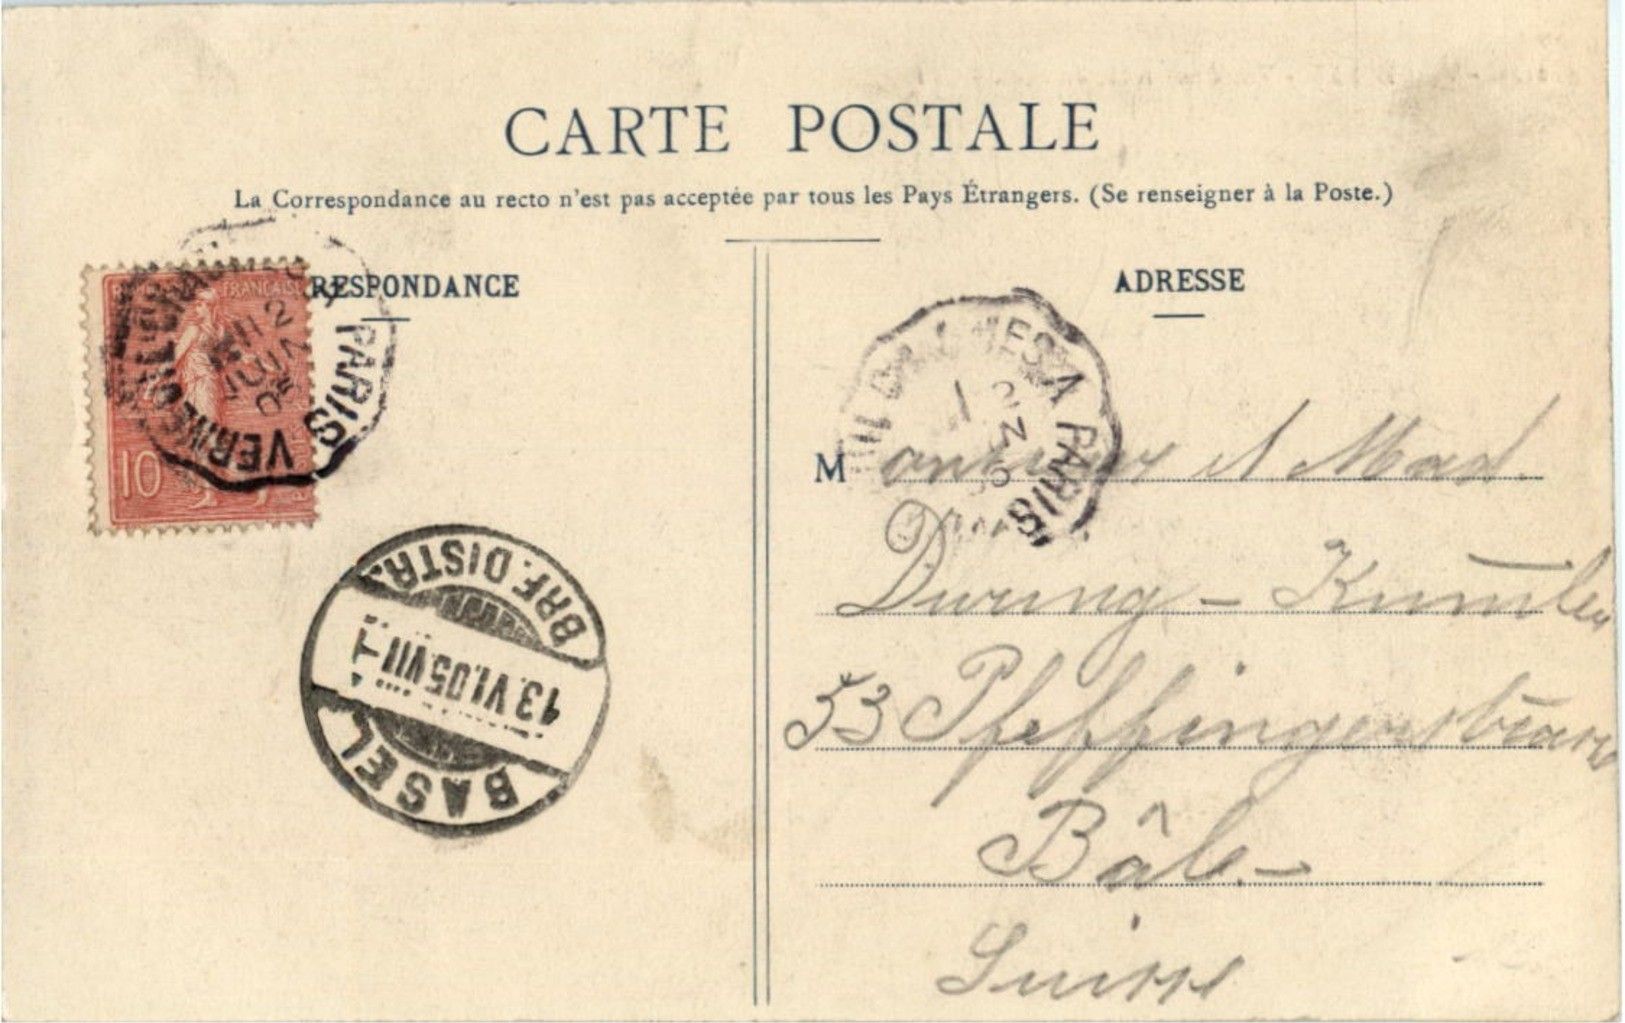 CARTE POSTALE
La Correspondance au recto n'est pas acceptée par tous les Pays Étrangers. (Se renseigner à la Poste.)
RESPONDANCE
ADRESSE
FRANÇAISE
10
PARIS
2
JUIN
05
A PARIS
2
BRF. DISTR.
13.VI.05.VIII
BASEL
Monsieur et Mad.
During - Kümlen
53 Pfeffingerstrasse
Bâle.-
Suisse